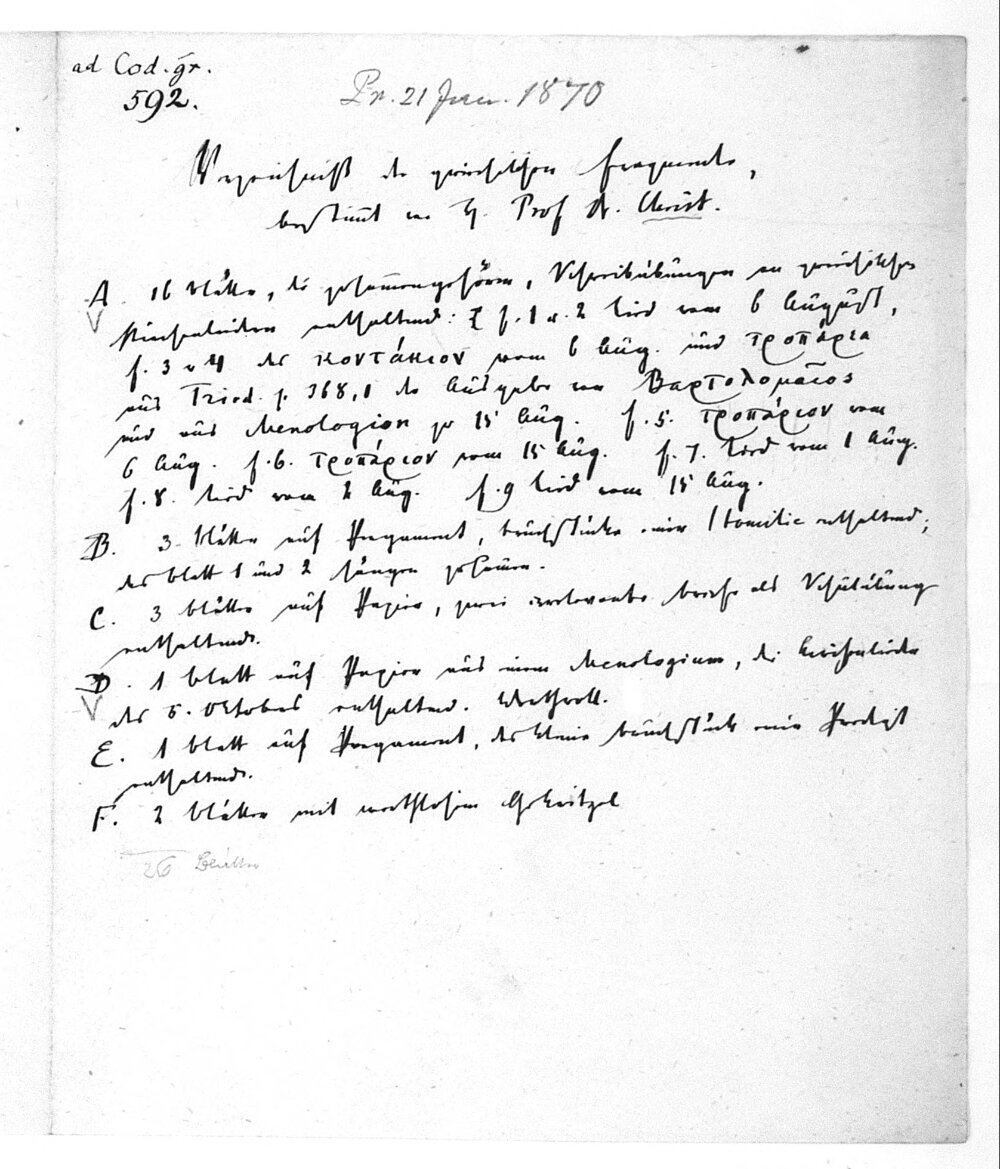 ad Cod. gr.
592.
Pr. 21 Jan. 1870
Verzeichniß der griechischen Fragmente,
bestimmt von H. Prof Dr. Christ.
A. 16 Blätter, die zusammengehören, Schreibübungen an griechischen
Kirchenliedern enthaltend: f. 1 u. 2 Lied vom 6 August,
f. 3 u 4 das κοντάκιον vom 6 Aug. und τροπάρια
aus Triod. p. 368,1 der Ausgabe von Βαρτολομαῖος
und aus Menologion zu 15 Aug. f. 5. τροπάριον vom
6 Aug. f. 6. τροπάριον vom 15 Aug. f. 7. Lied vom 1 Aug.
f. 8. Lied vom 2 Aug. f. 9 Lied vom 15 Aug.
B. 3 Blätter auf Pergament, Bruchstücke einer Homilie enthaltend;
das Blatt 1 und 2 hängen zusammen.
C. 3 Blätter auf Papier, zwei irrelevante Briefe als Schulübung
enthaltend.
D. 1 Blatt auf Papier aus einem Menologium, die Kirchenlieder
des 5. Oktobers enthaltend. Werthvoll.
E. 1 Blatt auf Pergament, das kleine Bruchstück einer Predigt
enthaltend.
F. 2 Blätter mit werthlosem Gekritzel
26 Blätter